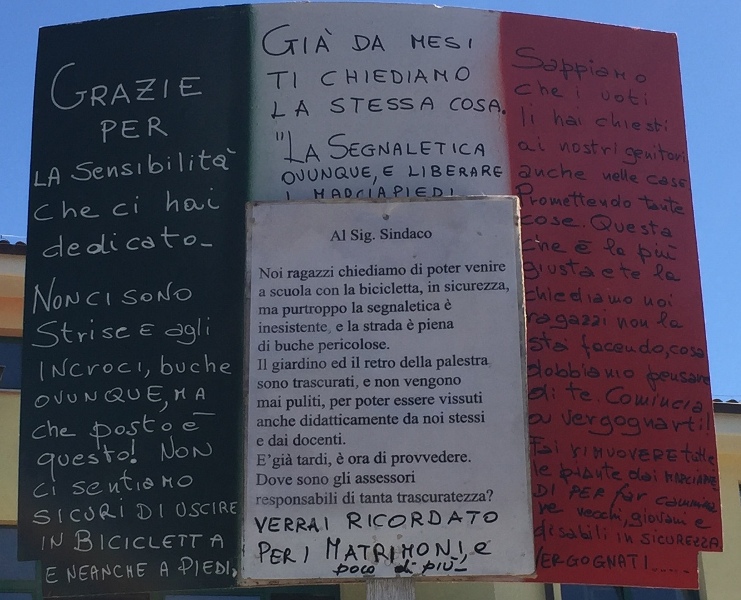 GRAZIE
PER
LA Sensibilità
che ci hai
dedicato-
NON CI SONO
Strise E agli
INCROCI, buche
OVUNQUE, MA
che posto è
questo! NON
ci sentiamo
SICURI DI USCIRE
IN BICICLETTA
E NEANCHE A PIEDI,
GIÀ DA MESI
TI CHIEDIAMO
LA STESSA COSA.
"LA SEGNALETICA
OVUNQUE, E LIBERARE
I MARCIAPIEDI
Al Sig. Sindaco
Noi ragazzi chiediamo di poter venire
a scuola con la bicicletta, in sicurezza,
ma purtroppo la segnaletica è
inesistente, e la strada è piena
di buche pericolose.
Il giardino ed il retro della palestra
sono trascurati, e non vengono
mai puliti, per poter essere vissuti
anche didatticamente da noi stessi
e dai docenti.
E'già tardi, è ora di provvedere.
Dove sono gli assessori
responsabili di tanta trascuratezza?
VERRAI RICORDATO
PER I MATRIMONI, e
poco di più-
Sappiamo
che i voti
li hai chiesti
ai nostri genitori
anche nelle case
Promettendo tante
cose. Questa
che è la più
giusta e te la
chiediamo noi
ragazzi non la
stai facendo, cosa
dobbiamo pensare
di te. Comincia
a vergognarti!
Fai RIMUOVERE tutte
le piante dai MARCIAPIE
DI PER far cammina
re vecchi, giovani e
disabili in SICUREZZA
VERGOGNATI.....